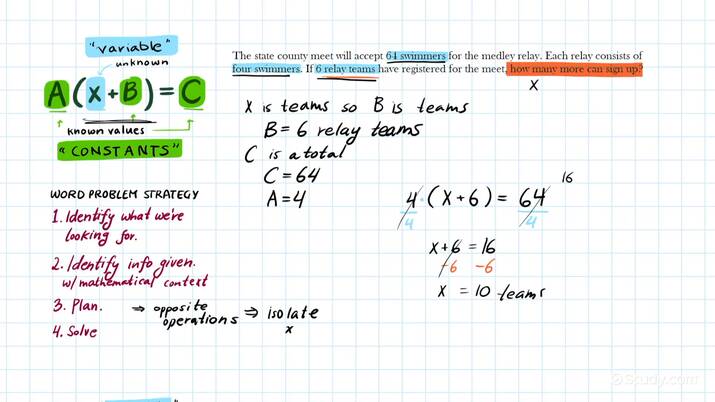 "variable"
unknown
A(x+B)=C
known values
"CONSTANTS"
The state county meet will accept 64 swimmers for the medley relay. Each relay consists of
four swimmers. If 6 relay teams have registered for the meet, how many more can sign up?
X
X is teams so B is teams
B = 6 relay teams
C is a total
C = 64
A = 4
WORD PROBLEM STRATEGY
1. Identify what we're
looking for.
2. Identify info given.
w/ mathematical context
3. Plan. ⇒ opposite operations ⇒ isolate x
4. Solve
16
4·(x+6) = 64
4 4
x+6 = 16
-6 -6
x = 10 teams
Study.com